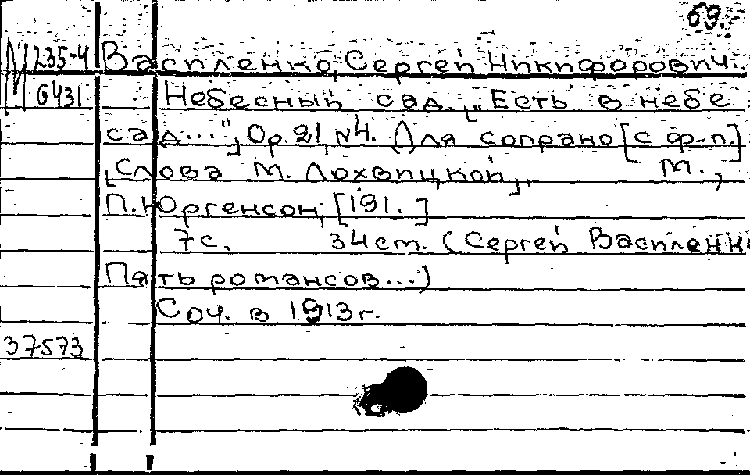 69.
М 235-4 Василенко, Сергей Никифорович.
6431 Небесный сад. „Есть в небе
сад...", Ор. 21, №4. Для сопрано [с ф-п.]
[Слова М. Лохвицкой]. М.,
П. Юргенсон, [191. ]
7 с. 34 cm. (Сергей Василенк
Пять романсов...)
Соч. в 1913 г.
37573